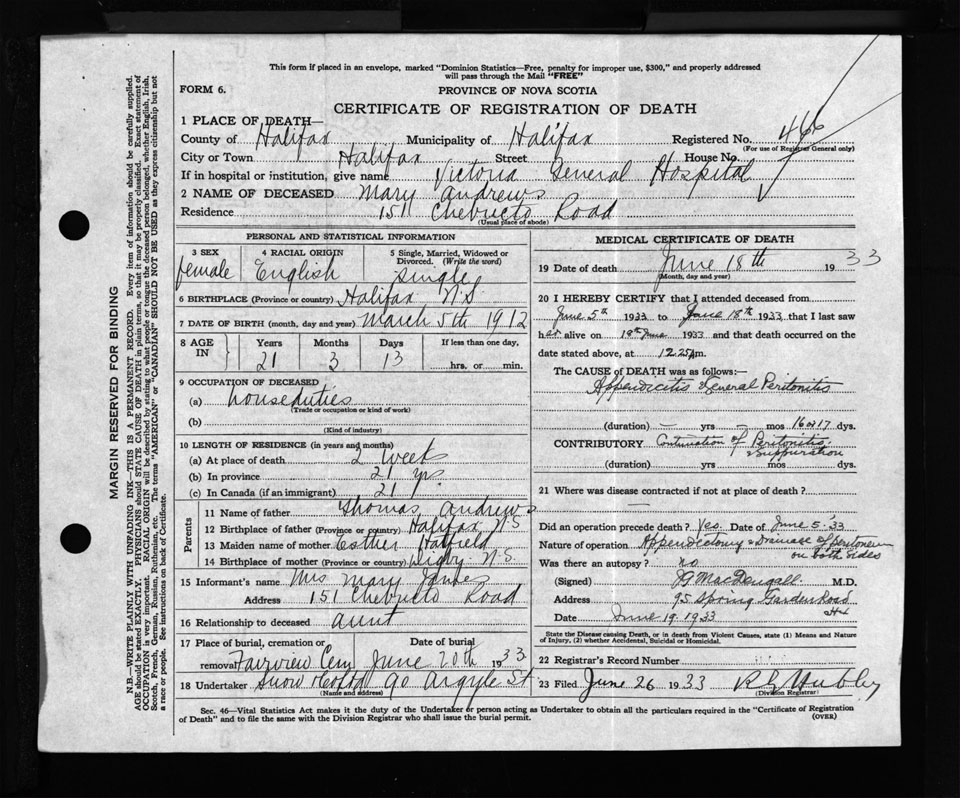 This form if placed in an envelope, marked "Dominion Statistics—Free, penalty for improper use, $300," and properly addressed
will pass through the Mail "FREE"
FORM 6. PROVINCE OF NOVA SCOTIA
CERTIFICATE OF REGISTRATION OF DEATH
1 PLACE OF DEATH—
County of Halifax Municipality of Halifax Registered No. 466
(For use of Registrar General only)
City or Town Halifax Street House No.
If in hospital or institution, give name Victoria General Hospital
2 NAME OF DECEASED Mary Andrews
Residence 151 Chebucto Road
(Usual place of abode)
PERSONAL AND STATISTICAL INFORMATION
3 SEX 4 RACIAL ORIGIN 5 Single, Married, Widowed or Divorced. (Write the word)
female English single
6 BIRTHPLACE (Province or country) Halifax N.S
7 DATE OF BIRTH (month, day and year) March 5th 1912
8 AGE IN Years Months Days If less than one day,
21 3 13 hrs. or min.
9 OCCUPATION OF DECEASED
(a) houseduties
(Trade or occupation or kind of work)
(b)
(Kind of industry)
10 LENGTH OF RESIDENCE (in years and months)
(a) At place of death 2 week
(b) In province 21 yr.
(c) In Canada (if an immigrant) 21 y.
Parents
11 Name of father Thomas Andrews
12 Birthplace of father (Province or country) Halifax N.S
13 Maiden name of mother Esther Hatfield
14 Birthplace of mother (Province or country) Digby N.S.
15 Informant's name Mrs Mary James
Address 151 Chebucto Road
16 Relationship to deceased aunt
17 Place of burial, cremation or removal Fairview Cem Date of burial June 20th 1933
18 Undertaker Snow &amp; Co Ltd 90 Argyle St
(Name and address)
MEDICAL CERTIFICATE OF DEATH
19 Date of death June 18th 1933
(Month, day and year)
20 I HEREBY CERTIFY that I attended deceased from
June 5th 1933 to June 18th 1933 that I last saw
her alive on 18th June 1933 and that death occurred on
date stated above, at 12.25 m.
The CAUSE of DEATH was as follows:—
Appendicitis General Peritonitis
(duration) — yrs — mos 16 or 17 dys.
CONTRIBUTORY Continuation of Peritonitis
& Suppuration
(duration) yrs mos dys.
21 Where was disease contracted if not at place of death?
—
Did an operation precede death? Yes. Date of June 5. '33
Nature of operation Appendectomy & Drainage of peritoneum
on both sides
Was there an autopsy? no
(Signed) JG MacDougall M.D.
Address 95 Spring Garden Road
Hx
Date June 19. 1933
State the Disease causing Death, or in death from Violent Causes, state (1) Means and Nature
of Injury, (2) whether Accidental, Suicidal or Homicidal.
22 Registrar's Record Number
23 Filed June 26 1933
(Division Registrar)
Sec. 46—Vital Statistics Act makes it the duty of the Undertaker or person acting as Undertaker to obtain all the particulars required in the "Certificate of Registration
of Death" and to file the same with the Division Registrar who shall issue the burial permit. (OVER)
MARGIN RESERVED FOR BINDING
N.B.—WRITE PLAINLY WITH UNFADING INK—THIS IS A PERMANENT RECORD. Every item of information should be carefully supplied.
AGE should be stated EXACTLY. PHYSICIANS should STATE CAUSE OF DEATH in plain terms, so that it may be properly classified. Exact statement of
OCCUPATION is very important. RACIAL ORIGIN will be described by stating to what people or tongue the deceased person belonged, whether English, Irish,
Scotch, French, German, Russian, Ruthenian, etc. The terms "AMERICAN" or "CANADIAN" SHOULD NOT BE USED as they express citizenship but not
a race or people. See instructions on back of Certificate.